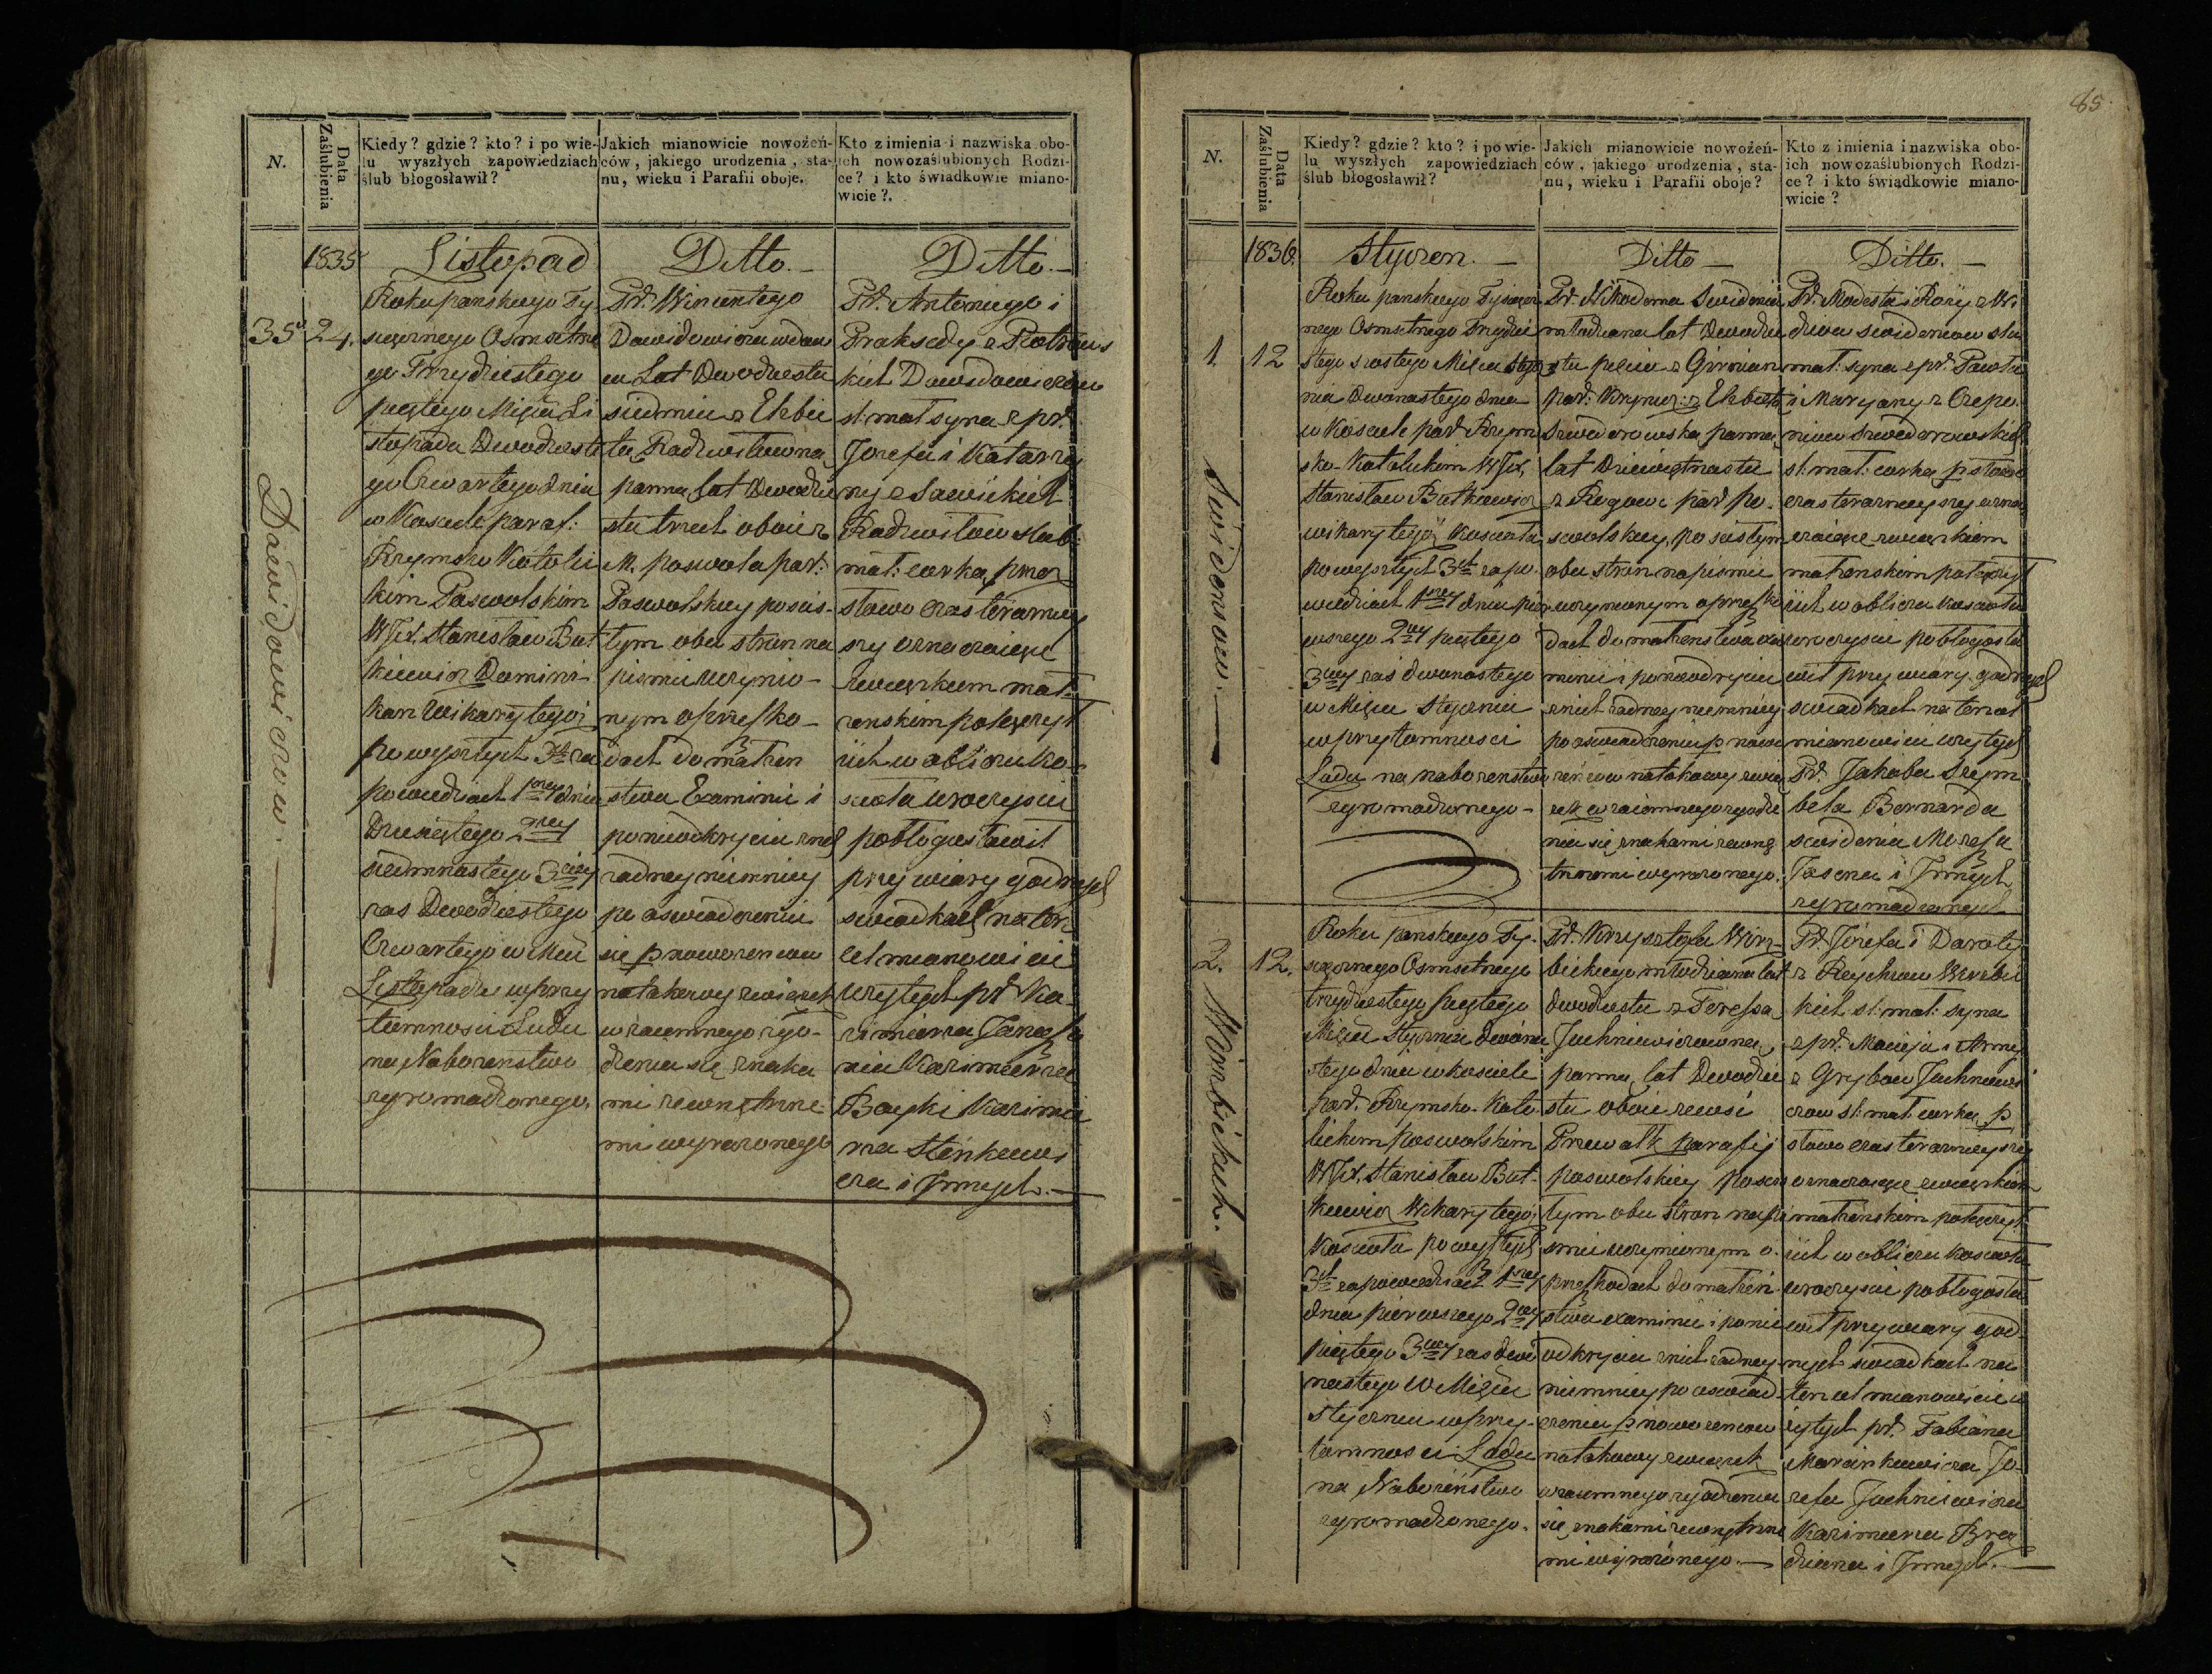 N.
Data Zaślubienia
Kiedy? gdzie? kto? i po wie-
lu wyszłych zapowiedziach
ślub błogosławił?
Jakich mianowicie nowożeń-
ców, jakiego urodzenia, sta-
nu, wieku i Parafii oboje.
Kto z imienia i nazwiska obo-
ich nowozaślubionych Rodzi-
ce? i kto świadkowie miano-
wicie?.
1835
35
24.
Dawidowiczow.
Listopad
Roku panskiego Ty
siącznego Osmsetne
go Trzydziestego
piętego Mięca Li
stopada Dwodzieste
go Czwartego dnia
w Kosciele paraf:
Rzymsko Katolic
kim Paswolskim
WJX. Stanisław But
kiewicz Domini-
kan Wikary tegoż
po wyszłych 3ch za
powiedziach 1szey dnia
Dziesiętego 2giey
siedmnastego 3ciey
zas Dwodziestego
Czwartego w Mcu
Listopadu w przy
tomnosci Ludu
na Naborenstwo
zgromadzonego.
Ditto.
Pr. Wincentego
Dawidowicza wdow
ca Lat Dwodziestu
siedmiu z Elzbie
tą Radziwiłowną
panną lat Dwodzie
stu trzech oboie z
M. poswola par:
Paswolskiey po scis-
tym obu stron na
pismie uczynio-
nym o przeszko-
dach do małżen
stwa Examinie i
po nieodkryciu znich
zadney niemniey
po oswiadczeniu
się p nowozencow
na takowy zwiezek
wzaiemnego zgo-
dzenia się znaka
mi zewnętrzne
mi wyrazonego
Ditto.
Pr. Antoniego i
Praksedy z Piotrows
kich Dawidowiczow
sł. mał. syna z pr.
Jozefa i Katarzy
ny z Sawickich
Radziwiłow slub:
mał: corką przez
słowo czas terazniey
szy oznaczaięce
zwięzkiem mał-
zenskim połęczył
iich w obliczu Ko-
scioła uroczyscie
pobłogosławił
przy wiary godnych
swiadkach na ten
cel mianowicie
uzytych pr. Ka-
zimierza
Kazimierza
Bayki Kazimie
rza Stenkiewi
cza i Jnnych.
85.
N.
Data Zaślubienia
Kiedy? gdzie? kto? i po wie-
lu wyszłych zapowiedziach
ślub błogosławił?
Jakich mianowicie nowożeń-
ców, jakiego urodzenia, sta-
nu, wieku i Parafii oboje?
Kto z imienia i nazwiska obo-
ich nowozaślubionych Rodzi-
ce? i kto świadkowie miano-
wicie?
1836.
1.
12
Swidoniow.
Styczen.
Roku panskiego Tysiącz
nego Osmsetnego Trzydzie
stego szostego Mięca Stycz
nia Dwonastego dnia
w Kosciele par Rzym
sko-Katolickim WJX.
Stanisław Butkiewicz
wikary tegoż Koscioła
po wyszłych 3ch zapo-
wiedziach 1szey dnia pier
wszego 2giey piętego
3ciey zas dwonastego
w Mięcu Styczniu
w przytomnosci
Ludu na naborenstwo
zgromadzonego
Ditto
Pr. Nikodema Swidonia
młodziana lat Dwodzie
stu pięciu z
par: z Elzbietą
Szwedorowską panną
lat Dziewiętnastu
z Rogowa par po-
swolskiey, po scistym
obu stron na pismie
uczynionym o przeszko
dach do małzenstwa exa
minie i po nieodkryciu
znich zadney niemniey
po oswiadczeniu p nowo
zencow na takowy zwią
zek wzaiemnego zgodze
nia się znakami zewnę
trznemi wyrazonego.
Ditto.
Pr. Modesta i Rozy z
Swidoniow slu
mał: syna z pr. Pawła
i Maryany z Czepo
niow Szwedorowskich
sł. mał. corką p słowo
czas teraznieyszy ozna
czaięce zwięzkiem
małzenskim połęczył
iich w obliczu Koscioła
uroczyscie pobłogosła
wił przy wiary godnych
swiadkach na ten cel
mianowicie uzytych
Pr. Jakoba Szym
bela Bernarda
Swidonia
i Jnnych
zgromadzonych
2.
12.
Wirzbickich.
Roku panskiego Ty-
siącznego Osmsetnego
trzydziestego szostego
Mięca Stycznia Dwóna
stego dnia w kosciele
par. Rzymsko-Kato
lickim poswolskim
WJX. Stanisław But-
kiewicz Wikary tegoż
Koscioła po wyszłych
3ch zapowiedziach 1szey
dnia pierwszego 2giey
piętego 3ciey zas dwu
nastego w Mięcu
Styczniu w przy-
tomnosci Ludu
na Naborenstwo
zgromadzonego.
Pr. Krzysztofa Wirz-
bickiego młodziana lat
dwodziestu z Teressą
Juchniewiczowną,
panną lat Dwodzie
stu oboie z wsi
Przewalk parafij
poswolskiey po scis
tym obu stron na pi
smie uczynionym o-
przeszkodach do małzen-
stwa examinie i po nie
odkryciu znich zadney
niemniey po oswiad-
czeniu p nowozencow
na takowy zwięzek
wzaiemnego zgodzenia
się znakami zewnętrzne
mi wyrazonego.
Pr. Józefa i Daroty
z Reychow Wirzbic
kich sł: mał: syna
z pr. Macieja i Anny
z Grybow Juchniewi
czow sł: mał: corką p
słowo czas teraznieyszy
oznaczaięce zwięzkiem
małzenskim połęczył
iich w obliczu Koscioła
uroczyscie pobłogosła
wił przy wiary god
nych swiadkach na
ten cel mianowicie u
zytych pr. Fabiana
Marcinkiewicza Jo-
zefa Juchniewicza
Kazimierza Bra
dziana i Jnnych.